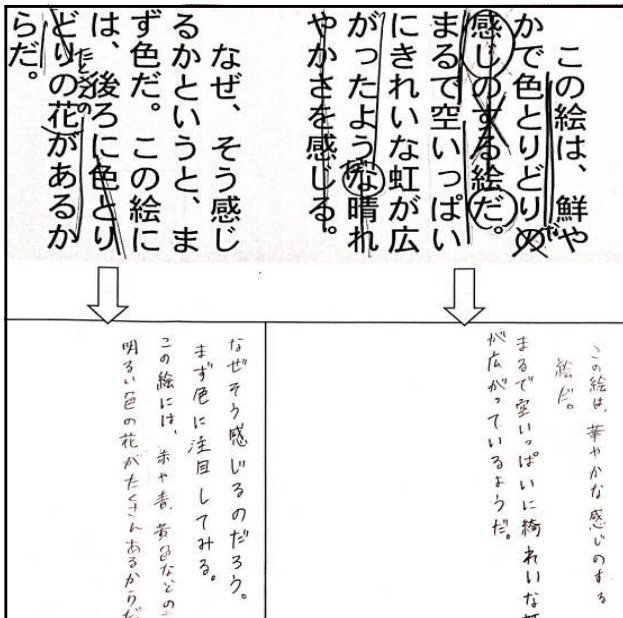 この絵は、鮮や
かで色とりどりめ
感じのする絵だ。
まるで空いっぱい
にきれいな虹が広
がったような晴れ
やかさを感じる。
なぜ、そう感じ
るかというと、ま
ず色だ。この絵に
は、後ろに色とり
どりの花があるか
らだ。
この絵は、華やかな感じのする
絵だ。
まるで空いっぱいに綺れいな
が広がっているようだ。
なぜそう感じるのだろう。
まず色に注目してみる。
この絵には、赤や青、黄色などの
明るい色の花がたくさんあるからだ